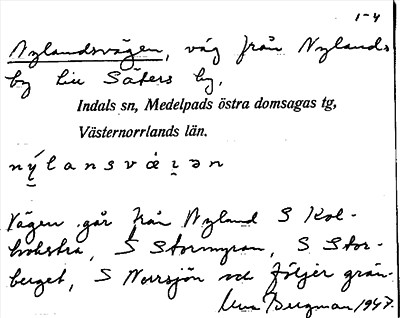 1-4
Nylandsvägen, väg från Nylands
by till Säters by,
Indals sn, Medelpads östra domsagas tg,
Västernorrlands län.
nýlansvά̀ɪ̯ən
Vägen går från Nyland S Kol-
bokstra, S Stormyran, S Stor-
berget, S Norrsjön och följer grän-
Bergman 1947.